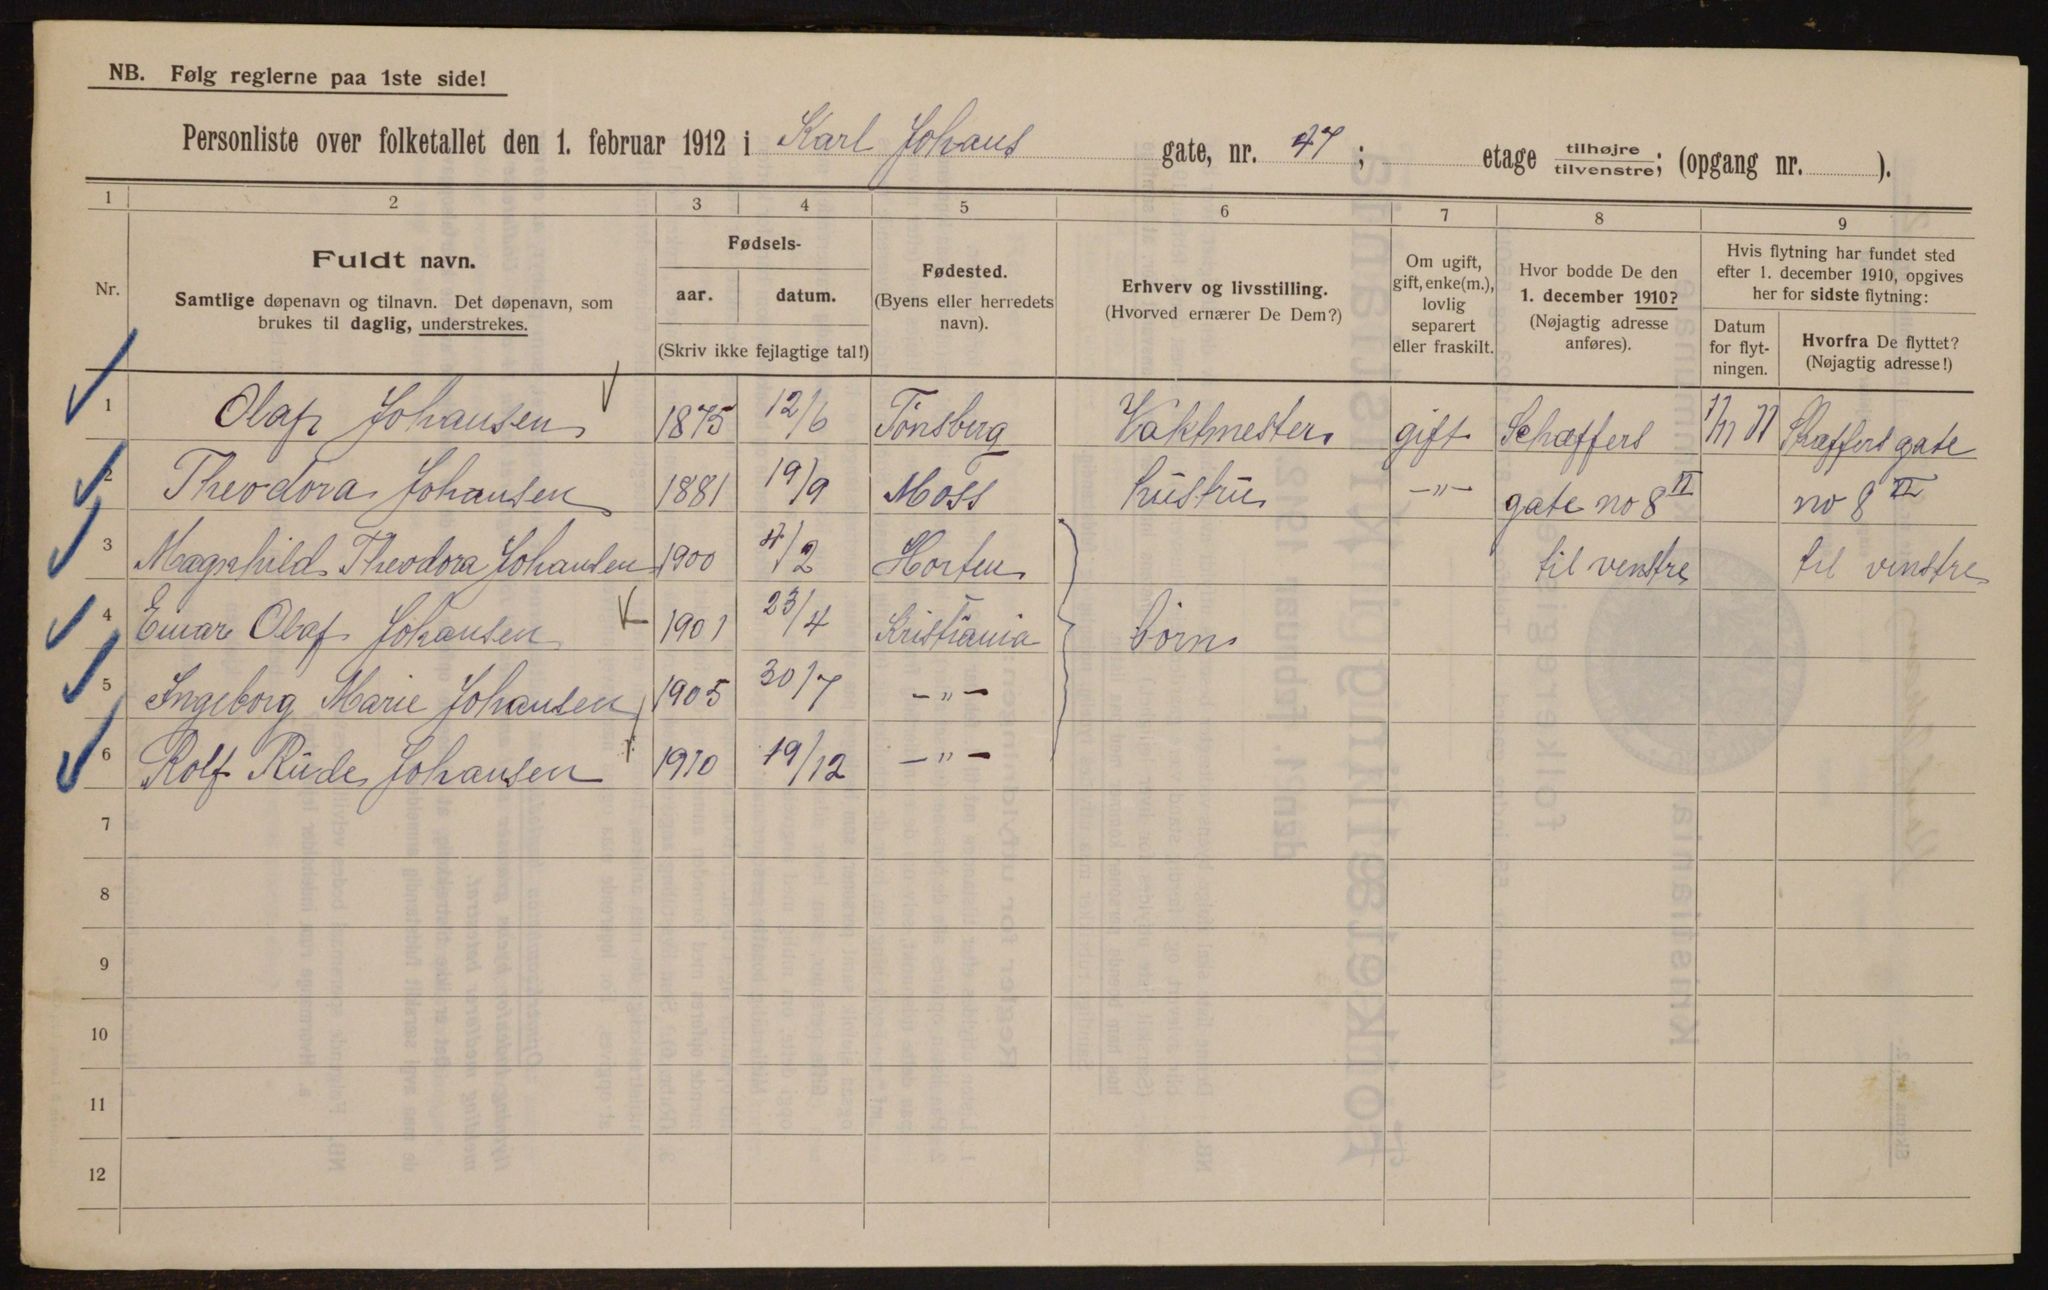 NB. Følg reglerne paa 1ste side!
Personliste over folketallet den 1. februar 1912 i Karl Johans gate, nr. 47; etage tilhøjre tilvenstre; (opgang nr. ).
1 2 3 4 5 6 7 8 9
Nr.
Fuldt navn.
Samtlige døpenavn og tilnavn. Det døpenavn, som
brukes til daglig, understrekes.
Fødsels-
aar. datum.
(Skriv ikke fejlagtige tal!)
Fødested.
(Byens eller herredets
navn).
Erhverv og livsstilling.
(Hvorved ernærer De Dem?)
Om ugift,
gift, enke(m.),
lovlig
separert
eller fraskilt.
Hvor bodde De den
1. december 1910?
(Nøjagtig adresse
anføres).
Hvis flytning har fundet sted
efter 1. december 1910, opgives
her for sidste flytning:
Datum
for flyt-
ningen.
Hvorfra De flyttet?
(Nøjagtig adresse!)
1 Olaf Johansen 1875 12/6 Tønsberg Vaktmester gift Schæffers Schæffers gate
2 Theodora Johansen 1881 19/9 Moss hustru -"- gate no 8 VI no 8 VI
3 Magnhild Theodora Johansen 1900 4/2 Horten til venstre til venstre
4 Einar Olaf Johansen 1901 23/4 Kristiania børn
5 Ingeborg Marie Johansen 1905 30/7 -"-
6 Rolf Rude Johansen 1910 19/12 -"-
7
8
9
10
11
12